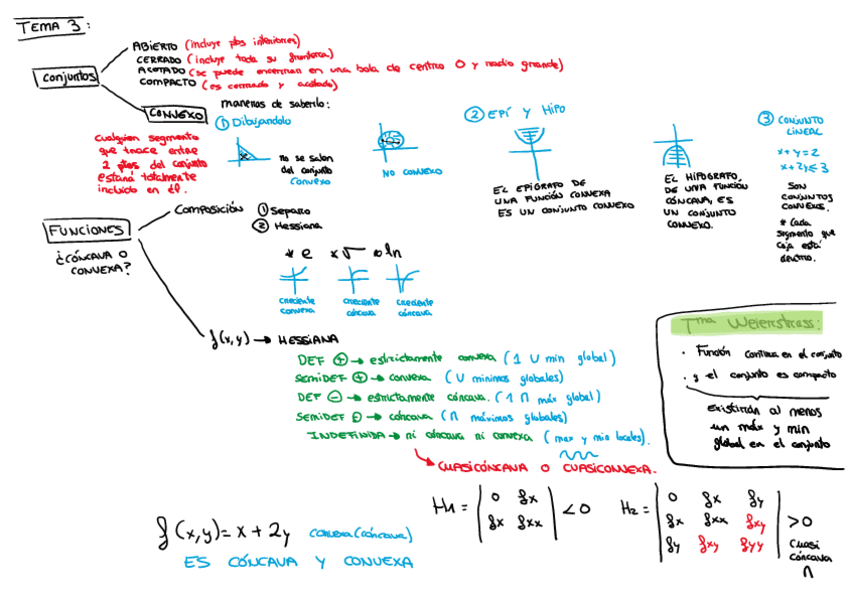 TEMA 3:
Conjuntos
ABIERTO (incluye ptos interiores)
CERRADO (incluye toda su frontera)
ACOTADO (se puede encerrar en una bola de centro 0 y radio grande)
COMPACTO (es cerrado y acotado)
CONVEXO
maneras de saberlo:
Cualquier segmento
que trace entre
2 ptos del conjunto
estará totalmente
incluido en él.
① Dibujandolo
no se salen
del conjunto
CONVEXO
NO CONVEXO
② EPÍ Y HIPO
EL EPÍGRAFO DE
UNA FUNCIÓN CONVEXA
ES UN CONJUNTO CONVEXO
EL HIPOGRAFO,
DE UNA FUNCIÓN
CÓNCAVA, ES
UN CONJUNTO
CONVEXO.
③ CONJUNTO
LINEAL
x+y=2
x+2y≤3
SON
CONJUNTOS
CONVEXOS.
* Cada
segmento que
coja está
dentro.
FUNCIONES
¿CÓNCAVA O
CONVEXA?
COMPOSICIÓN
① Separo
② Hessiana
* e * √ * ln
creciente
convexa
creciente
cóncava
creciente
cóncava
f(x,y) → HESSIANA
DEF ⊕ → estrictamente convexa (1 U min global)
SEMIDEF ⊕ → convexa (U mínimos globales)
DEF ⊖ → estrictamente cóncava. (1 ∩ máx global)
SEMIDEF ⊖ → cóncava (∩ máximos globales)
INDEFINIDA → ni cóncava ni convexa (max y min locales).
CUASICÓNCAVA O CUASICONVEXA.
Tma Weierstrass:
· Función continua en el conjunto
· y el conjunto es compacto
existirán al menos
un máx y min
global en el conjunto
f(x,y) = x + 2y convexa (cóncava)
ES CÓNCAVA Y CONVEXA
H1 = | 0 fx | < 0
| fx fxx |
H2 = | 0 fx fy |
| fx fxx fxy | > 0
| fy fxy fyy |
cuasi
cóncava
∩